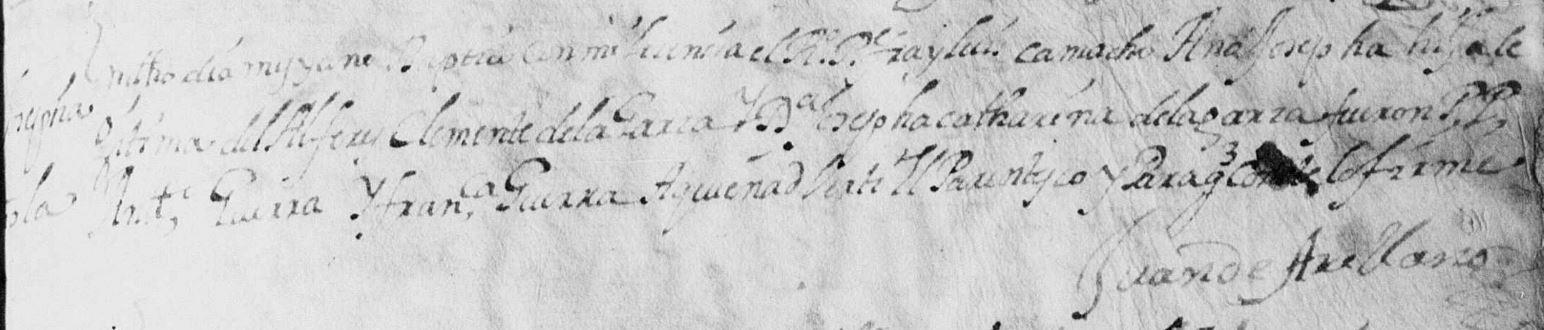 en dho dia mes y año Baptizó con mi licencia el R.ᵒ P.ᵉ fray luis camacho Ana Josepha hija le
Josepha
gitima del Alferes Clemente de la Garza y D.ᵃ Josepha catharina de la garza fueron P.P.
Ant.ᵒ Guerra y fran.ᶜᵃ Guerra A quienes adverti el Parentesco y Para q̃ conste lo firme
Juan de Arellano